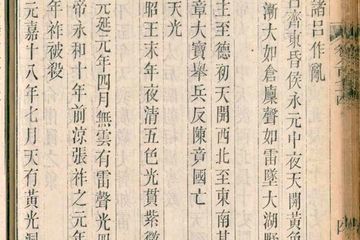 諸呂作亂
齊東昏侯永元中夜天開黃色
漸大如倉廩聲如雷墜大湖野
主至德初天開西北至東南其
章大寶舉兵反陳竟國亡
昭王末年夜清五色光貫紫微
天光
元延元年四月無雲有雷聲光四
帝永和十年前涼張祚之元年
年祚被殺
元嘉十八年七月天有黃光洞